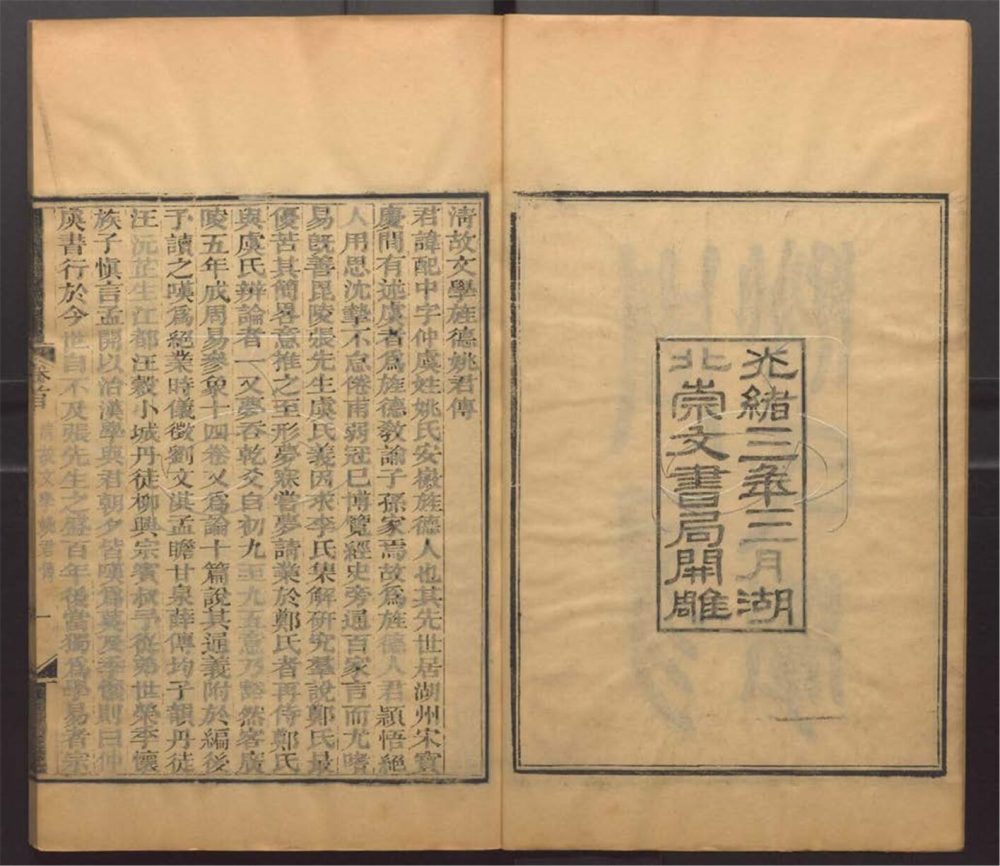 光緒三年三月湖
北崇文書局開雕
清故文學旌德姚君傳
君諱配中字仲虞姓姚氏安徽旌德人也其先世居湖州宋寶
慶間有述虞者爲旌德敎諭子孫家焉故爲旌德人君穎悟絕
人用思沈摯不怠倦甫弱冠巳博覽經史旁通百家言而尤嗜
易旣善毘陵張先生虞氏義因求李氏集解研究羣說鄭氏最
優苦其簡畧意推之至形夢寐嘗夢請業於鄭氏者再侍鄭氏
與虞氏辨論者一又夢吞乾爻自初九至九五意乃豁然客廣
陵五年成周易參象十四卷又爲論十篇說其通義附於編後
予讀之嘆爲絕業時儀徵劉文淇孟瞻甘泉薛傳均子韻丹徒
汪沅芷生江都汪穀小城丹徒柳興宗賓叔予從弟世榮季懷
族子愼言孟開以治漢學與君朝夕皆嘆爲莫及季懷則曰仲
虞書行於今世自不及張先生之盛百年後當獨爲學易者宗
卷首
清故文學姚君傳
一